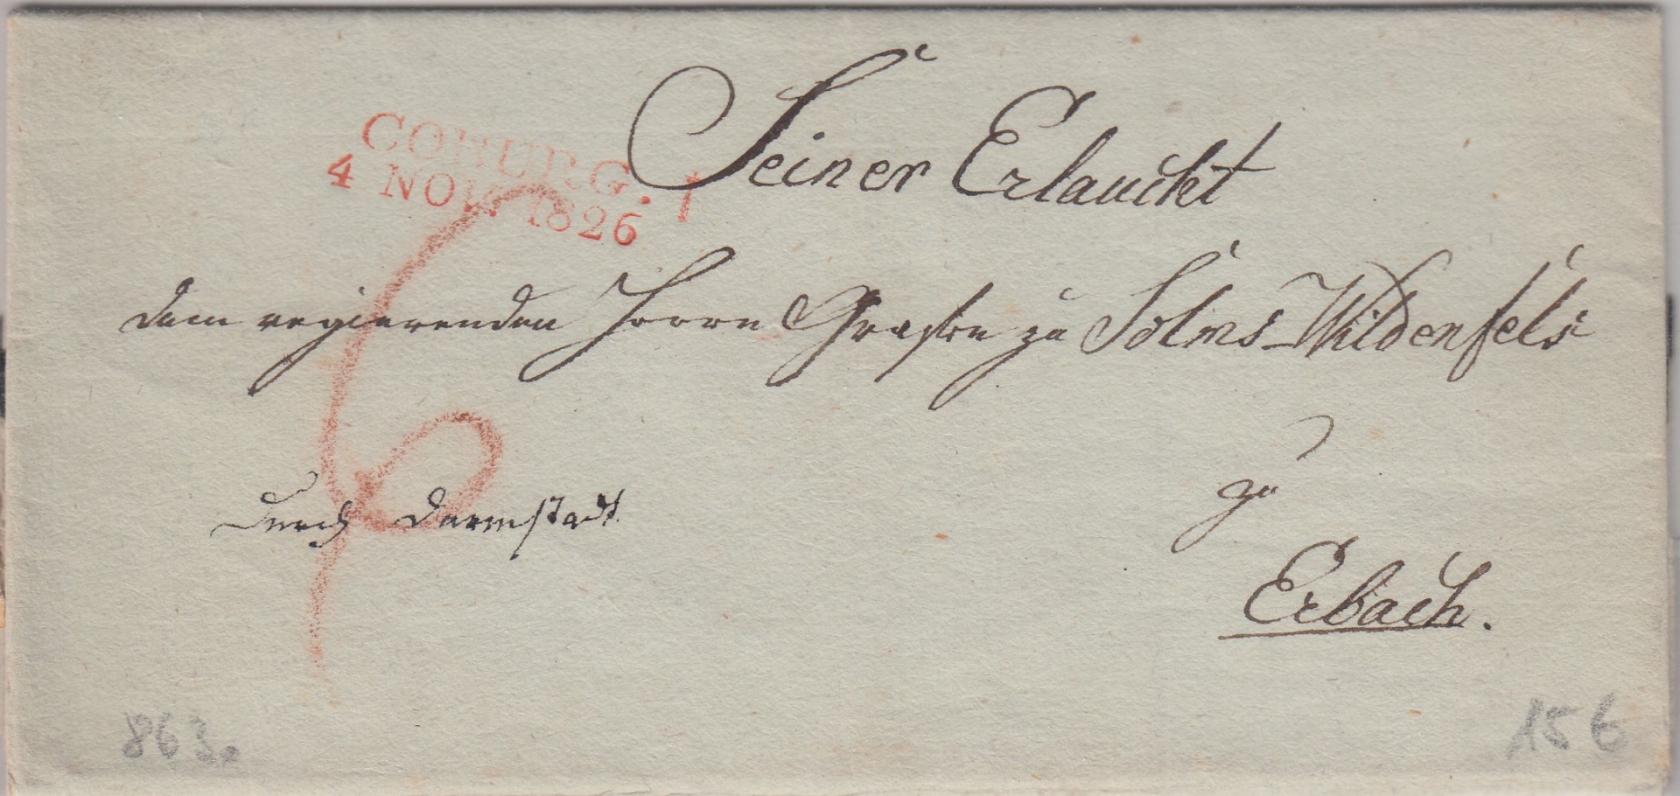 COBURG.
4 NOV. 1826
Seiner Erlaucht
dem regierenden Herrn Grafen zu Solms-Wildenfels
zu
durch Darmstadt.
Erbach.
863.
15 €